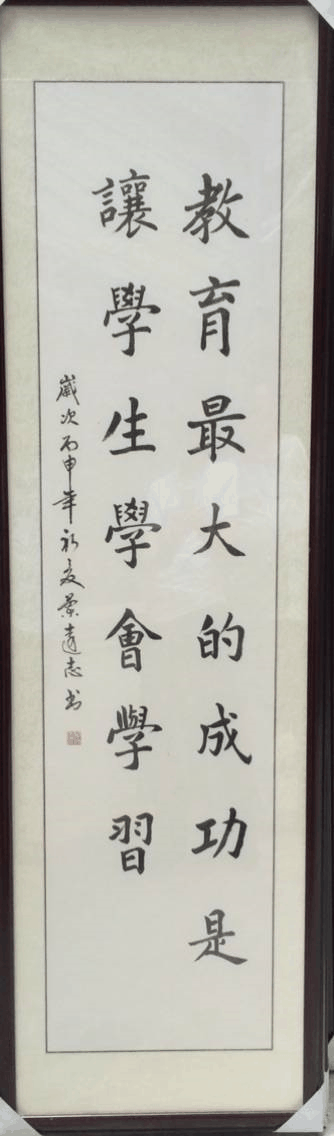 教育最大的成功是
讓學生學會學習
歲次丙申年初夏葉達志书